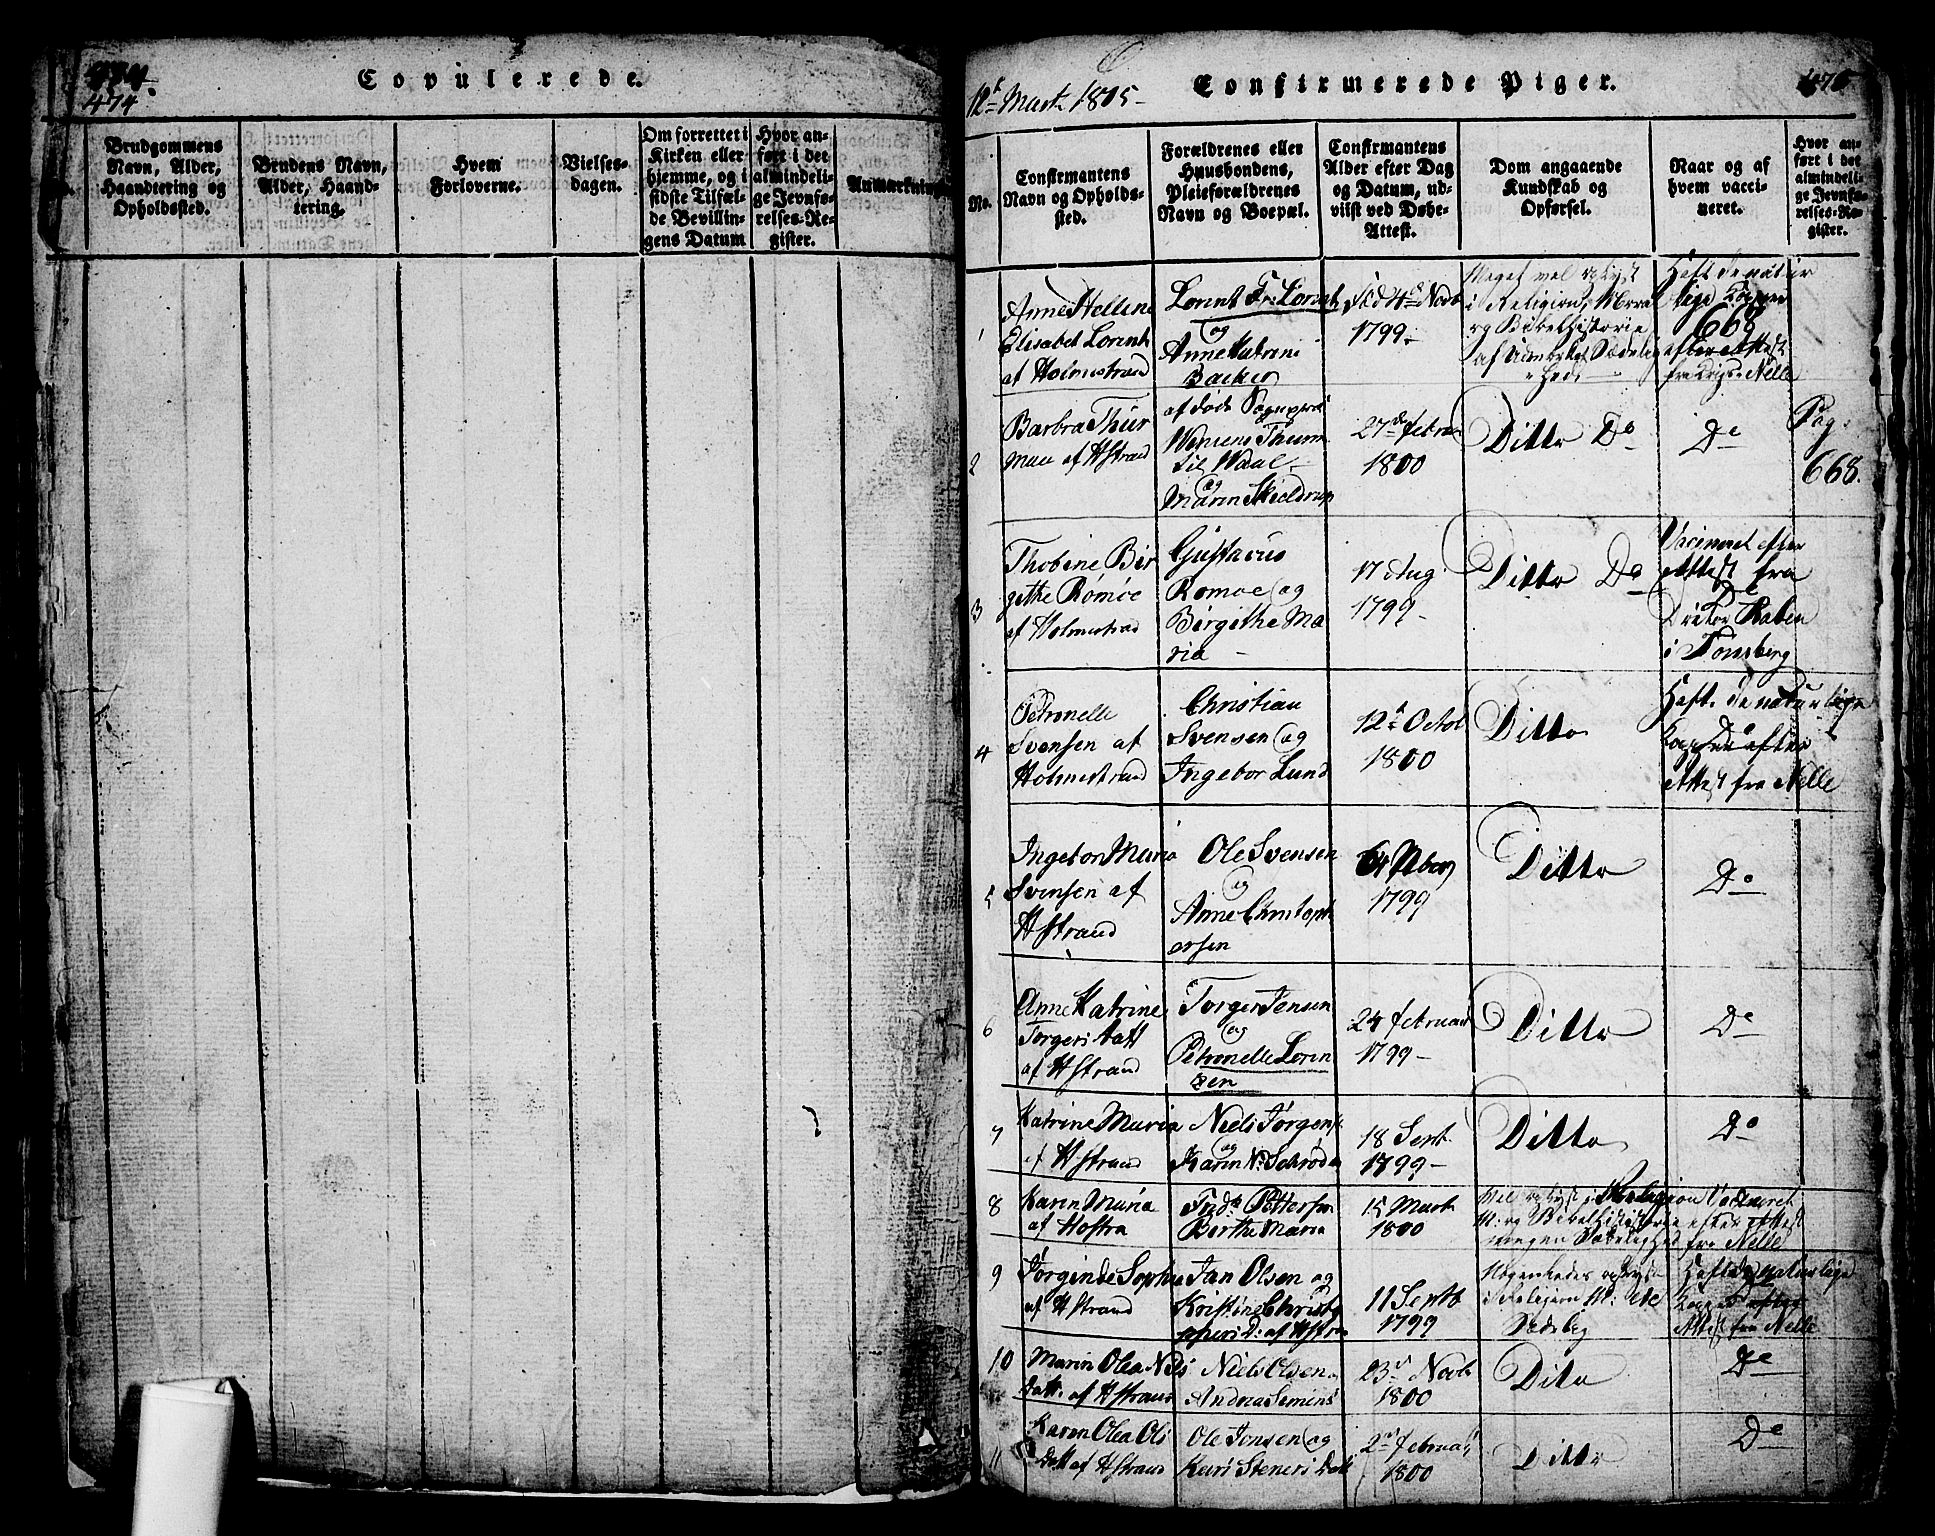 474.
474
Copulerede.
Brudgommens
Navn, Alder,
Haandtering og
Opholdssted.
Brudens Navn,
Alder, Haand-
tering.
Hvem
Forloverne.
Vielses-
dagen.
Om forrettet i
Kirken eller
hjemme, og i
sidste Tilfæl-
de Bevillin-
gens Datum
Hvor an-
ført i det
almindeli-
ge Jevnfø-
relses-Re-
gister.
Anmærkning
12t Marts 1815-
Confirmerede Piger.
475
No.
Confirmantens
Navn og Opholds-
sted.
Forældrenes eller
Huusbondens,
Pleieforældrenes
Navn og Boepæl.
Confirmantens
Alder efter Dag
og Datum, ud-
viist ved Døbe-
Attest.
Dom angaaende
Kundskab og
Opførsel.
Naar og af
hvem vacci-
neret.
Hvor an-
ført i det
almindeli-
ge Jevnfø-
relses-Re-
gister.
1
Anne Hellene
Elisabet Lorents
af Holmestrand
Lorents Fr: Lorents
og
Anne Katrine
Backer
Fød 4de Novb
1799.
Meget vel oplyst
i Religion, Moral
og Bibelhistorie
af Udmerket Sædelig
-hed
Haft de natur
lige Kopper
668
efter Attest
fra Nelle
2
Barbra Thur
man af HStrand
af døde Sogneprest
Thurm
til Waal
og
Maren Skieldrup
27de febru
1800
Ditto Do
Do
Pag:
668.
3
Thobine Bir
gethe Römöe
af Holmestrad
Gustavus
Romoe og
Birgithe Ma
ria -
17 Aug
1799-
Ditto Do
Vacineret efter
Attest fra
Raben
i Tonsberg
4
Petronelle
Svensen af
Holmestrand
Christian
Svensen og
Ingebor Lund
12t Octob
1800
Ditto
Haft de naturlige
Kopper efter
Attest fra Nelle
5
Ingebor Maria
Svensen af
HStrand
Ole Svensen
og
Anne Christoph
ersen
1799
Ditto
Do
6
Anne Katrine
Torgers datt
af HStrand
Torger Jensen
og
Petronelle Loren
zen
24 februar
1799-
Ditto
Do
7
Katrine Maria
af HStrand
Niels Jörgens
og
Karen N: Schrøder
18 Sept.
1799-
Ditto
Do
8
Karen Maria
af Hostra
Fredr Pettersen
Berthe Maria
15 Marts
1800
Vel oplyst i Religion
M: og Bibelhistorie
megen Sædelighed
Vacineret
efter Attest
fra Nelle
9
Jørginde Sophie
af HStrand
Jan Olsen og
Kristine Christo
phers D: af HStran
11 Septb
1799
Nogenledes oplyst
i Religion M:
Sædelig
Haft de naturlige
Kopper efter
Attest fra Nelle
10
Maren Olea Nils
Datt. af HStrand
Niels Olsen
Andrea Semens
23de Novb
1800
Dito
Do
11
Karen Olea Ols
Datt af HStrand
Ole Jonsen og
Kari Steners Datt
2de februar
1800
Ditto
Do